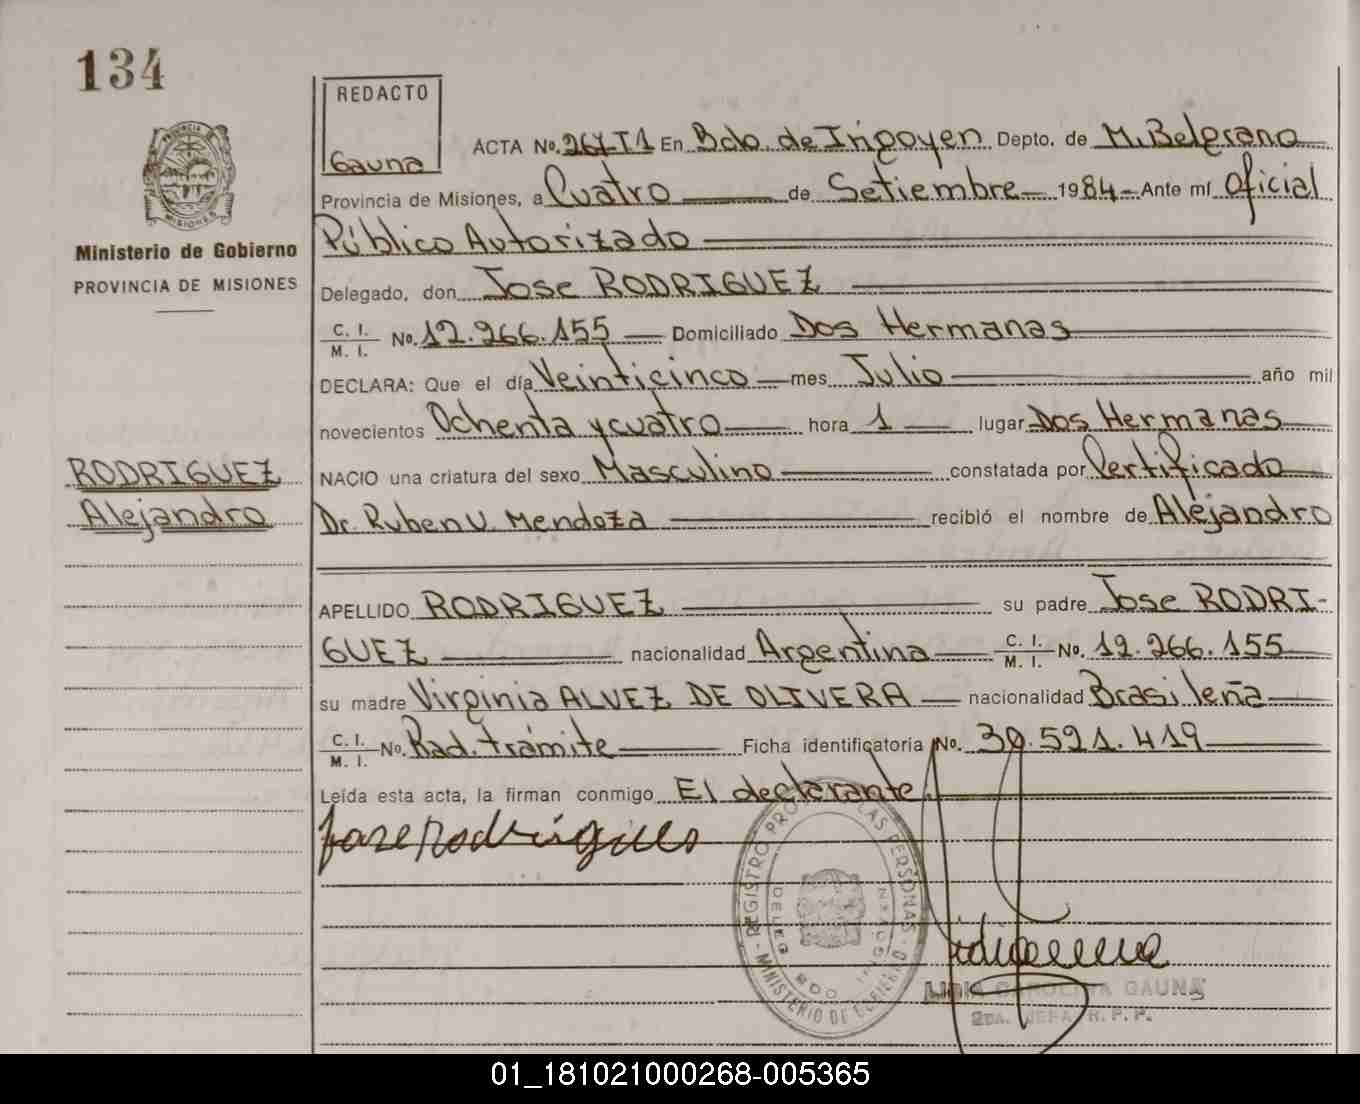 134
REDACTO
Gauna
PROVINCIA DE MISIONES
Ministerio de Gobierno
PROVINCIA DE MISIONES
RODRIGUEZ
Alejandro
ACTA No. 267-T1 En Bdo. de Irigoyen Depto. de M. Belgrano
Provincia de Misiones, a Cuatro de Setiembre 1984 Ante mí Oficial
Público Autorizado
Delegado, don Jose RODRIGUEZ
C. I.
M. I. No. 12.266.155 Domiciliado Dos Hermanas
DECLARA: Que el día Veinticinco mes Julio año mil
novecientos Ochenta y cuatro hora 1 lugar Dos Hermanas
NACIO una criatura del sexo Masculino constatada por Certificado
Dr. Ruben U. Mendoza recibió el nombre de Alejandro
APELLIDO RODRIGUEZ su padre Jose RODRI-
GUEZ nacionalidad Argentina C. I.
M. I. No. 12.266.155
su madre Virginia ALVEZ DE OLIVERA nacionalidad Brasileña
C. I.
M. I. No. Rad. trámite Ficha identificatoria No. 30.521.419
Leída esta acta, la firman conmigo El declarante.
REGISTRO PRO LAS PERSONAS - MINISTERIO DE GOBIERNO -
DELEG BDO
LIDIA CAROLINA GAUNA
2da. JEFA R. P. P.
01_181021000268-005365